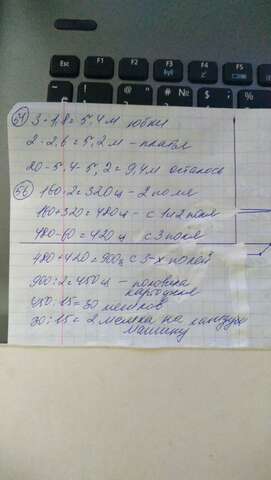 Esc F1 F2 F3 F4 F5
54 3·1,8=5,4м юбки
2·2,6=5,2м - платья
20-5,4-5,2=9,4м осталось
56 160·2=320ц - 2 поле
160+320=480ц - с 1и2 поля
480-60=420ц с 3 поля
480+420=900ц с 3-х полей
900:2=450ц - половина
картофеля
450:15=30 мешков
30:15=2 мешка на каждую
машину